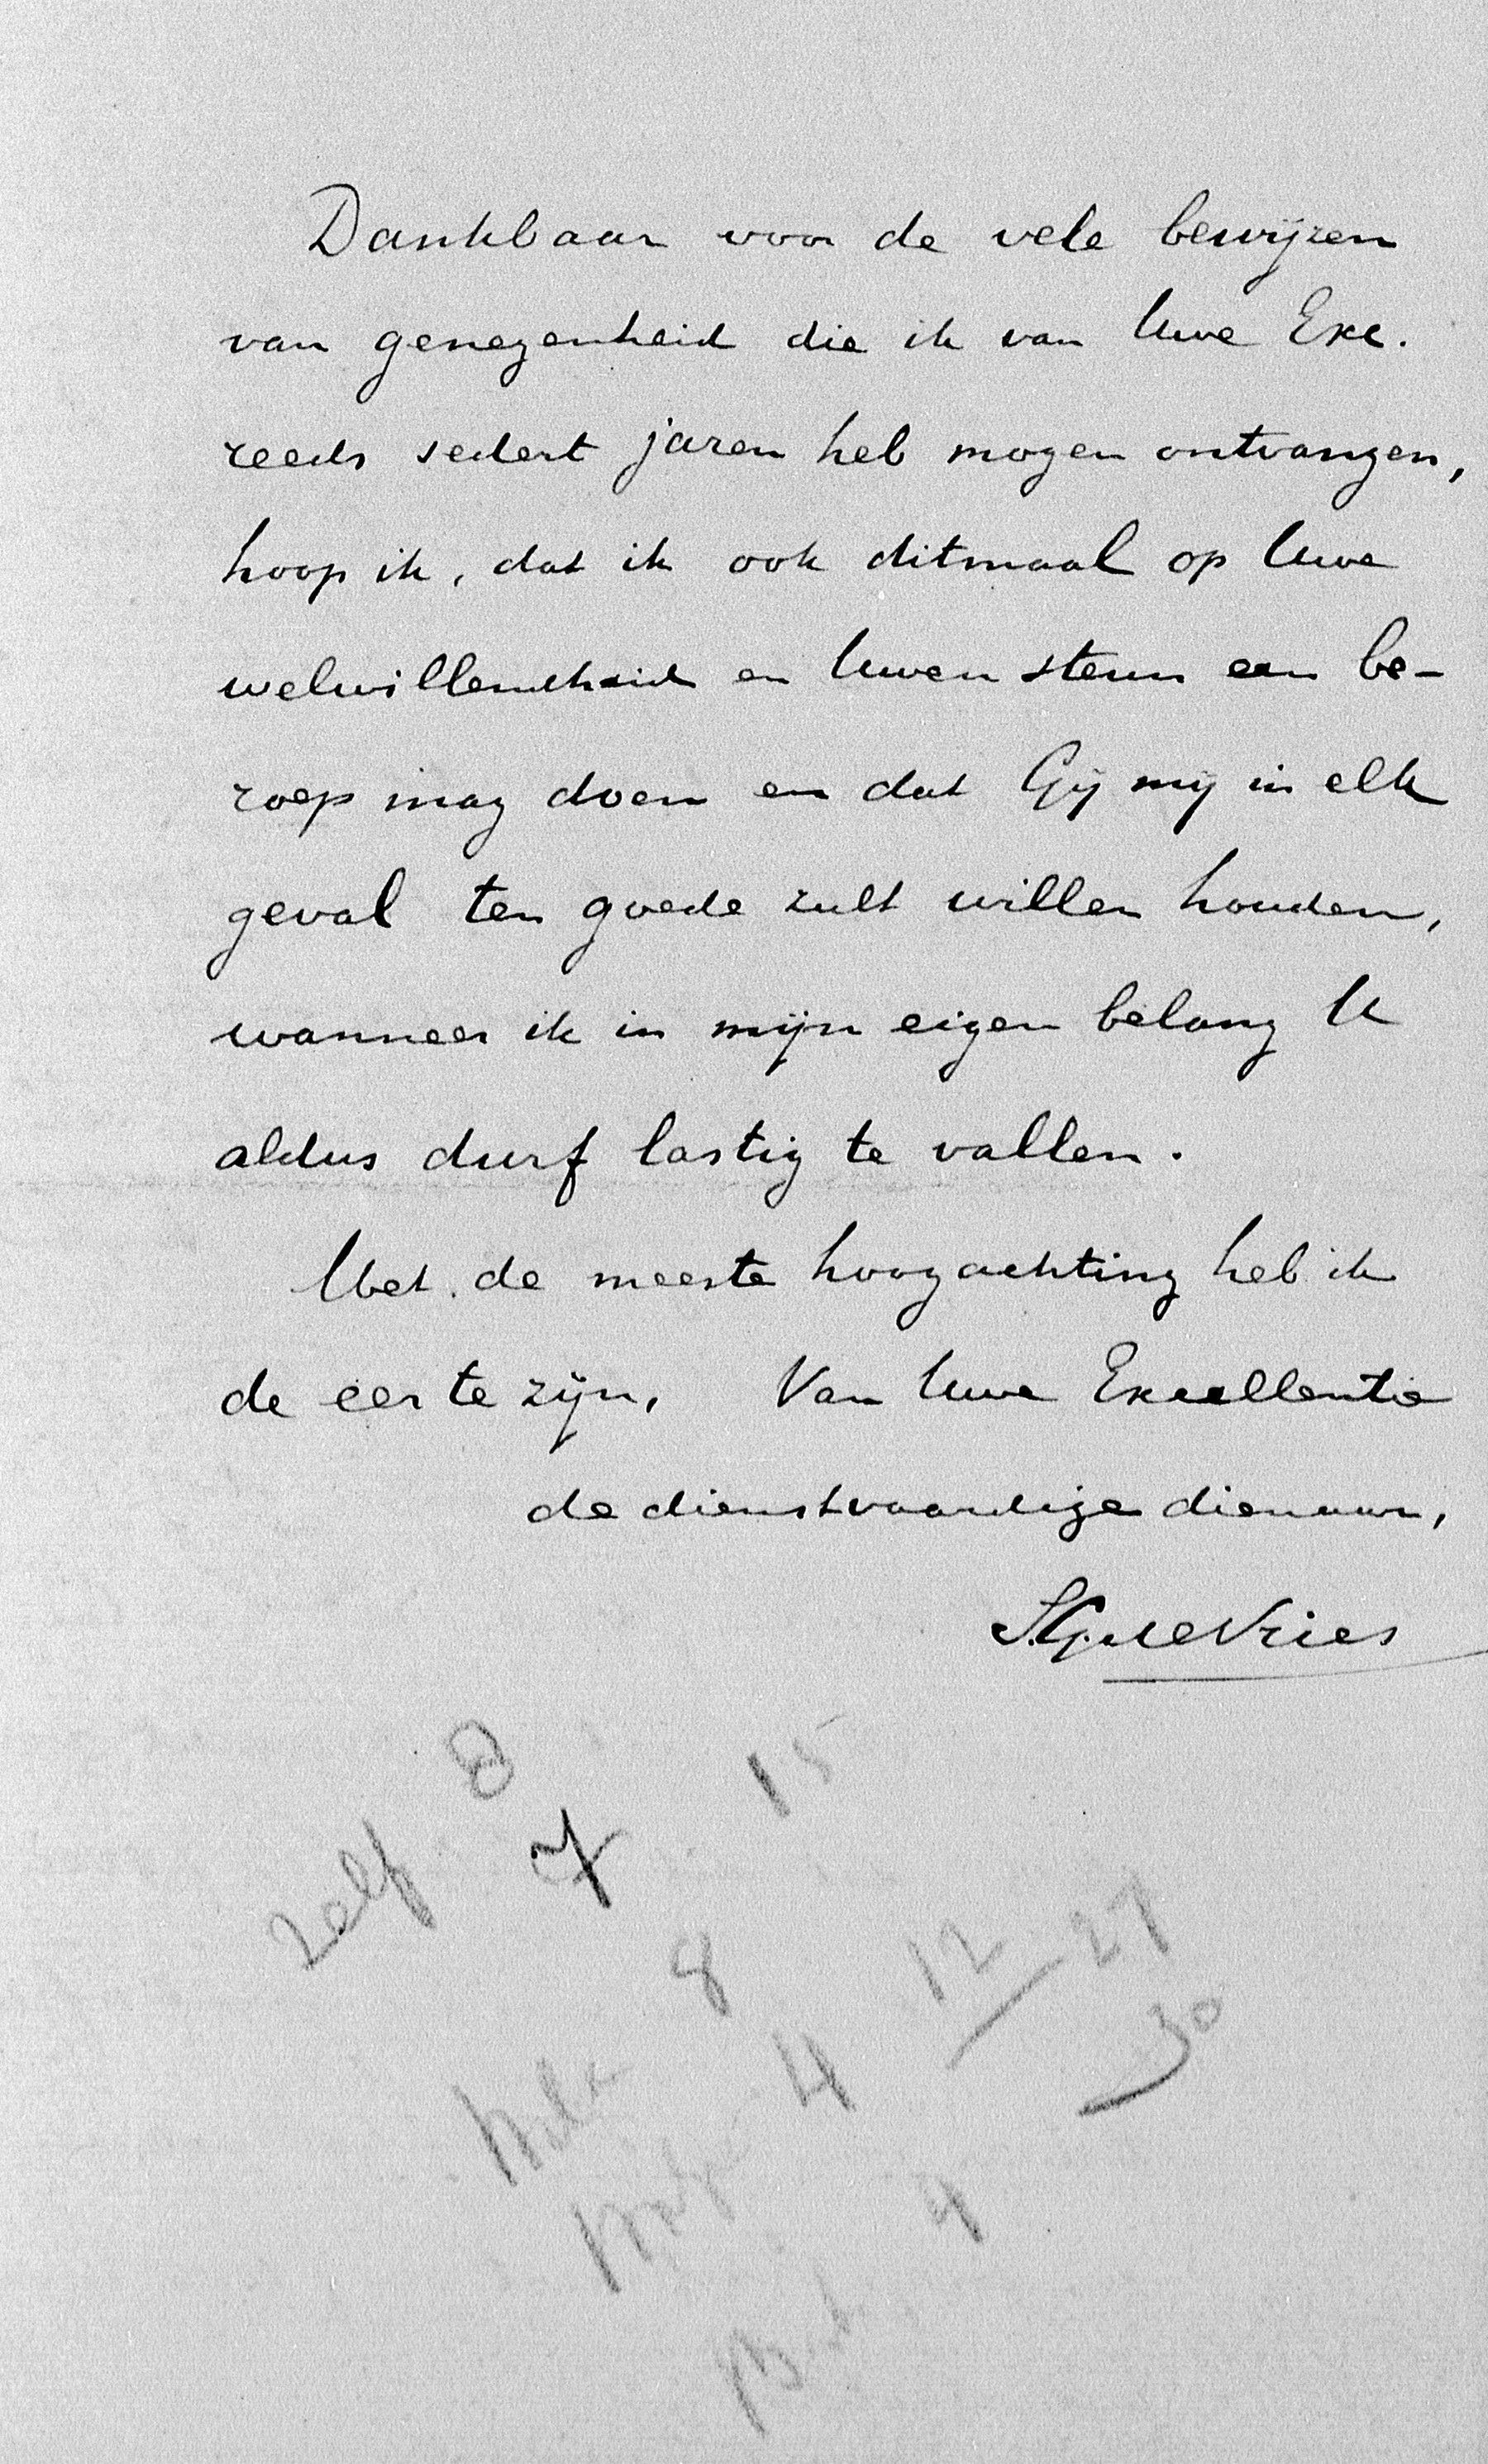 Dankbaar voor de vele bewijzen
van genegenheid die ik van Uwe Exc.
reeds sedert jaren heb mogen ontvangen,
hoop ik, dat ik ook ditmaal op Uwe
welwillendheid en Uwen steun een be-
roep mag doen en dat Gij mij in elk
geval ten goede zult willen houden,
wanneer ik in mijn eigen belang U
aldus durf lastig te vallen.
Met de meeste hoogachting heb ik
de eer te zijn, Van Uwe Excellentie
de dienstvaardige dienaar,
S.G. de Vries
8 15
zelf 7
8 12 27
4 30
4